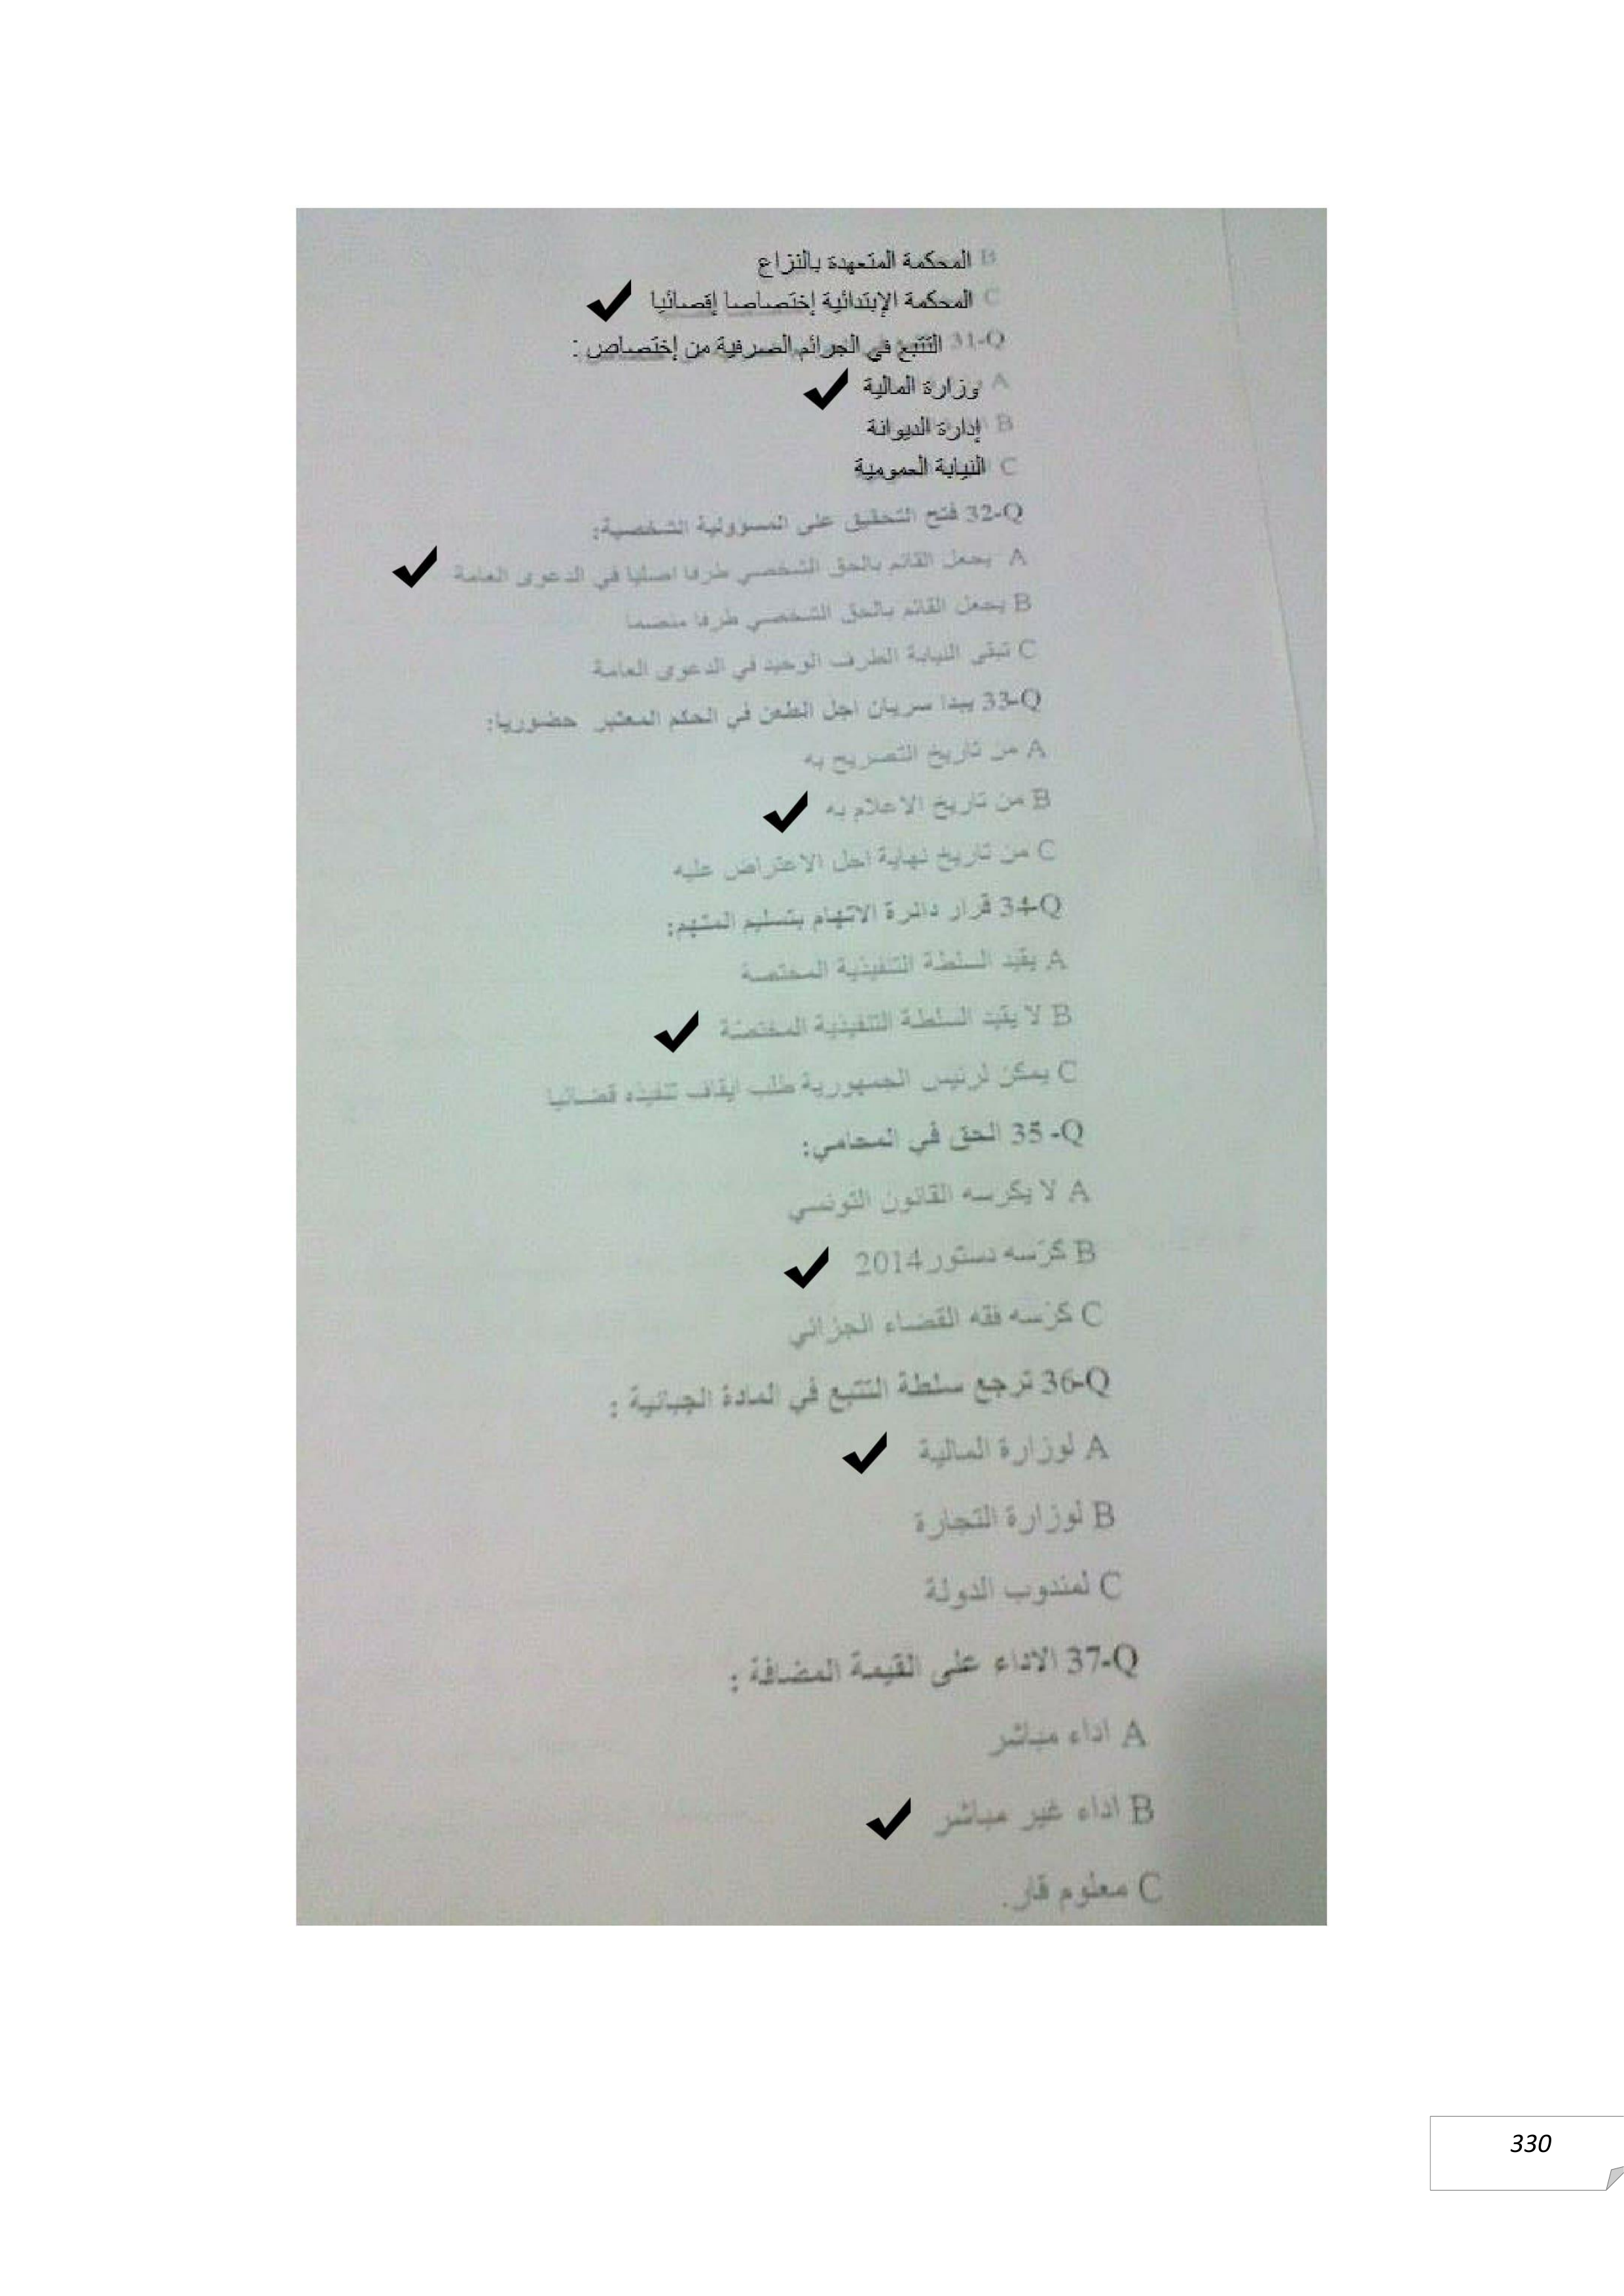 B المحكمة المتعهدة بالنزاع
C المحكمة الإبتدائية إختصاصا إقصائيا ✔
31-Q التتبع في الجرائم الصرفية من إختصاص :
A وزارة المالية ✔
B إدارة الديوانة
C النيابة العمومية
32-Q فتح التحقيق على المسؤولية الشخصية:
A يجعل القائم بالحق الشخصي طرفا اصليا في الدعوى العامة ✔
B يجعل القائم بالحق الشخصي طرفا منضما
C تبقى النيابة الطرف الوحيد في الدعوى العامة
33-Q يبدا سريان اجل الطعن في الحكم المعتبر حضوريا:
A من تاريخ التصريح به
B من تاريخ الاعلام به ✔
C من تاريخ نهاية اجل الاعتراض عليه
34-Q قرار دائرة الاتهام بتسليم المتهم:
A يقيد السلطة التنفيذية المختصة
B لا يقيد السلطة التنفيذية المختصّة ✔
C يمكن لرئيس الجمهورية طلب ايقاف تنفيذه قضائيا
35 -Q الحق في المحامي:
A لا يكرسه القانون التونسي
B كرّسه دستور 2014 ✔
C كرّسه فقه القضاء الجزائي
36-Q ترجع سلطة التتبع في المادة الجبائية :
A لوزارة المالية ✔
B لوزارة التجارة
C لمندوب الدولة
37-Q الاداء على القيمة المضافة :
A اداء مباشر
B اداء غير مباشر ✔
C معلوم قار.
330